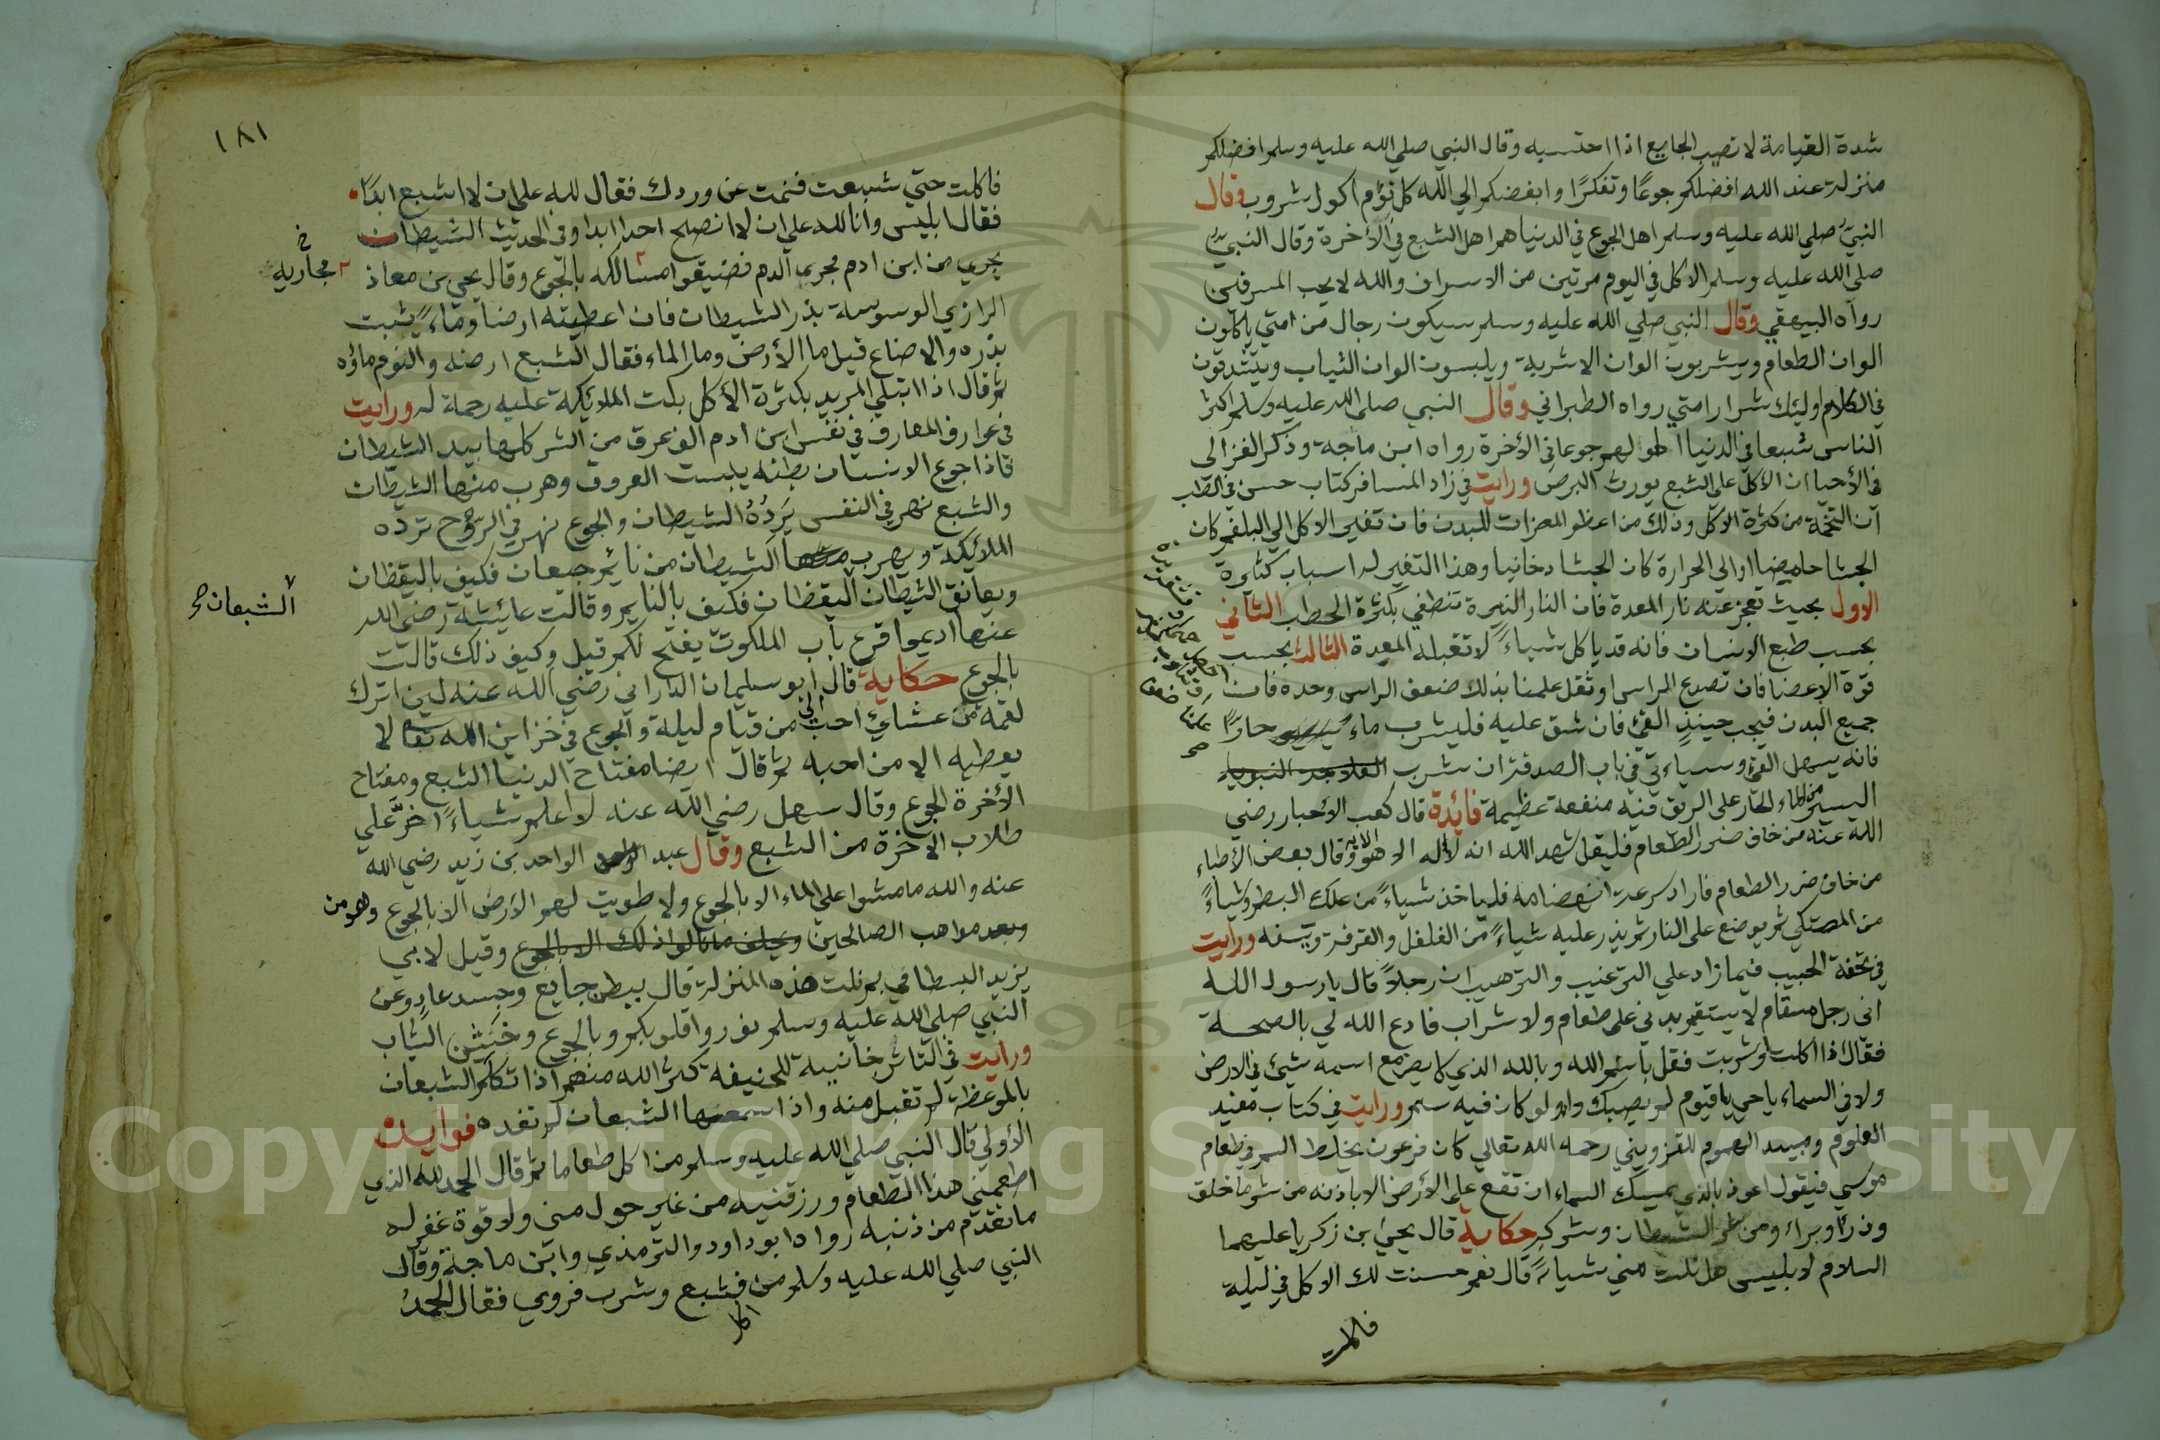 شدة القيامة لا تصيب الجايع اذا احتسبه وقال النبي صلي الله عليه وسلم افضلكم
منزلة عند الله افضلكم جوعا وتفكرا وابغضكم الي الله كل نؤم اكول شروب وقال
النبي صلي الله عليه وسلم اهل الجوع في الدنيا هم اهل الشبع في الأخرة وقال النبي
صلي الله عليه وسلم الاكل في اليوم مرتين من الاسراف والله لا يحب المسرفين
رواه البيهقي وقال النبي صلي الله عليه وسلم سيكون رجال من امتي ياكلون
الوان الطعام ويشربون الوان الاشربة ويلبسون الوان الثياب ويتشدقون
في الكلام اوليك شرار امتي رواه الطبراني وقال النبي صلي الله عليه وسلم اكثر
الناس شبعا في الدنيا اطولهم جوعا في الأخرة رواه ابن ماجة وذكر الغزالي
في الأحيا ان الأكل علي الشبع يورث البرص ورايت في زاد المسافر كتاب حسن في الطب
ان التخمة من كثرة الاكل وذلك من اعظم المضرات للبدن فان تغير الاكل الي البلغم كان
الجشا حامضا او الي الحرارة كان الجشا دخانيا وهذا التغير له اسباب كثيرة
الاول بحيث تعجز عنه نار المعدة فان النار اليسيرة تنطفي بكثرة الحطب الثاني
بحسب طبع الانسان فانه قد ياكل شياء لا تقبله المعدة الثالث بحسب
قوة الاعضا فان تصدع الراس او ثقل علمنا بذلك ضعف الراس وحده فان
جميع البدن فيجب حينئذ القئ فان شق عليه فليشرب ماء حارا
فانه يسهل القئ وسياتي في باب الصدقة ان شرب
اليسير من الماء الحار علي الريق فيه منفعة عظيمة فائدة قال كعب الأحبار رضي
الله عنه من خاف ضرر الطعام فليقل شهد الله انه لا اله الا هو الاية وقال بعض الأطباء
من خاف ضرر الطعام فاراد سرعة انهضامه فلياخذ شياء من علك البطم وشياء
من المصتكي ثم يوضع علي النار ثم يذر عليه شياء من الفلفل والقرفة ويسفه ورايت
في تحفة الحبيب فيما زاد علي الترغيب والترهيب ان رجلا قال يا رسول الله
اني رجل مسقام لا يستقيم بدني علي طعام ولا شراب فادع الله لي بالصحة
فقال اذا اكلت او شربت فقل باسم الله وبالله الذي لا يضر مع اسمه شئ في الارض
ولا في السماء يا حي يا قيوم لم يصبك داء ولو كان فيه سم ورايت في كتاب مفيد
العلوم ومبيد الهموم للقزويني رحمه الله تعالي كان فرعون يخلط السم في طعام
موسي فيقول اعوذ بالذي يمسك السماء ان تقع علي الأرض الا باذنه من شر ما خلق
وذرا وبراء ومن شر الشيطان وشركه حكاية قال يحيي بن زكريا عليهما
السلام لابليس هل نلت مني شياء قال نعم حسنت لك الاكل في ليلة
فاكلت
١٨١
فاكلت حتي شبعت فنمت عن وردك فقال لله علي ان لا اشبع ابدا
فقال ابليس وانا لله علي ان لا انصح احدا ابدا وفي الحديث الشيطان
يجري من ابن ادم مجري الدم فضيقوا مسالكه بالجوع وقال يحيي بن معاذ
خ مجاريه
الرازي الوسوسة بذر الشيطان فان اعطيته ارضا وماء يثبت
بذره والا ضاع قيل ما الأرض وما الماء فقال الشبع ارضه والنوم ماؤه
ثم قال اذا ابتلي المريد بكثرة الأكل بكت الملائكة عليه رحمة له ورايت
في عوارف المعارف في نفس ابن ادم الف عرق من الشر كلها بيد الشيطان
فاذا جوع الانسان بطنه يبست العروق وهرب منها الشيطان
والشبع نهر في النفس يرده الشيطان والجوع نهر في الروح ترده
الملائكة ويهرب الشيطان من نائم جيعان فكيف باليقظان
ويعانق الشيطان اليقظان فكيف بالنايم وقالت عايشة رضي الله
الشبعان صح
عنها اديموا قرع باب الملكوت يفتح لكم قيل وكيف ذلك قالت
بالجوع حكاية قال ابو سليمان الداراني رضي الله عنه لين اترك
لقمة من عشائي احب الي من قيام ليلة والجوع في خزاين الله تعالا لا
يعطيه الا من احبه ثم قال ايضا مفتاح الدنيا الشبع ومفتاح
الأخرة الجوع وقال سهل رضي الله عنه لا اعلم شياء اضر علي
طلاب الاخرة من الشبع وقال عبد الواحد بن زيد رضي الله
عنه والله ما مشوا علي الماء الا بالجوع ولا طويت لهم الأرض الا بالجوع وهو من
مواهب الصالحين وقيل لابي
يزيد البسطامي بم نلت هذه المنزلة قال ببطن جايع وجسد عار وعن
النبي صلي الله عليه وسلم نوروا قلوبكم بالجوع وخشن الثياب
ورايت في التاتارخانيه للحنيفة كثر الله منهم اذا تكلم الشبعان
بالموعظة لم تقبل منه واذا سمعها الشبعان لم تفده فوايد
الأولي قال النبي صلي الله عليه وسلم من اكل طعاما ثم قال الحمد لله الذي
اطعمني هذا الطعام ورزقنيه من غير حول مني ولا قوة غفر له
ما تقدم من ذنبه رواه ابو داود والترمذي وابن ماجة وقال
النبي صلي الله عليه وسلم من اكل فشبع وشرب فروي فقال الحمد
Copyright © King Saud University
1957